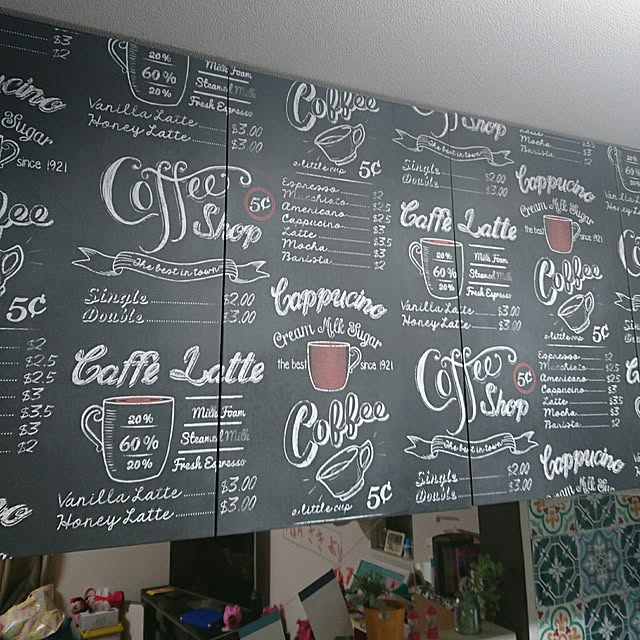 20%
60%
20%
Milk Foam
Steamed Milk
Fresh Espresso
Vanilla Latte $3.00
Honey Latte $3.00
since 1921
Coffee
Shop
5¢
The best in town
Single $2.00
Double $3.00
Caffè Latte
20%
60%
20%
Milk Foam
Steamed Milk
Fresh Espresso
Vanilla Latte $3.00
Honey Latte $3.00
5¢
$2
$2.5
$2.5
$3
$3.5
$3
$2
Coffee
a little cup 5¢
Espresso $2
Macchiato $2.5
Americano $2.5
Cappuccino $3
Latte $3.5
Mocha $3
Barista $2
Cappucino
Cream Milk Sugar
the best since 1921
Coffee
a little cup 5¢
Shop
The best in town
Single $2.00
Double $3.00
Caffè Latte
20%
60%
20%
Milk Foam
Steamed Milk
Fresh Espresso
Vanilla Latte $3.00
Honey Latte $3.00
Coffee
Shop
5¢
The best in town
Single $2.00
Double $3.00
Latte $3.5
Mocha $3
Barista $2
Cappucino
Cream Milk Sugar
the best since 1921
Coffee
a little cup 5¢
Espresso $2
Macchiato $2.5
Americano $2.5
Cappuccino $3
Latte $3.5
Mocha $3
Barista $2
Cappucino